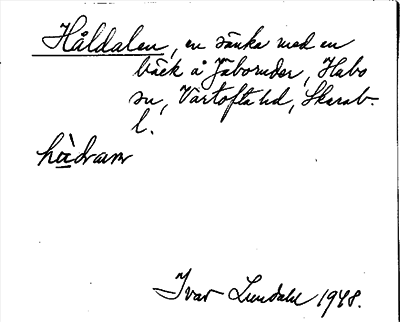 Håldalen, en sänka med en
bäck å Jäboruder, Habo
sn, Vartofta hd, Skarab.
l.
hàdram
Ivar Lundahl 1948.